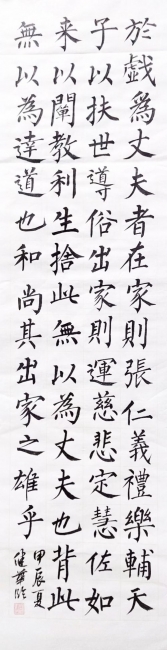 於戯為丈夫者在家則張仁義禮樂輔天
子以扶世導俗出家則運慈悲定慧佐如
来以闡教利生捨此無以為丈夫也背此
無以為達道也和尚其出家之雄乎
甲辰夏